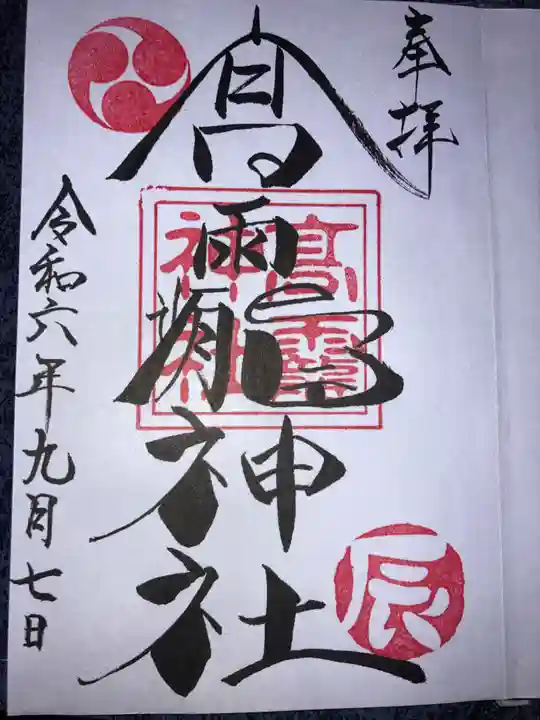 奉拝
高龗神社
令和六年九月七日
高龗
神社
辰